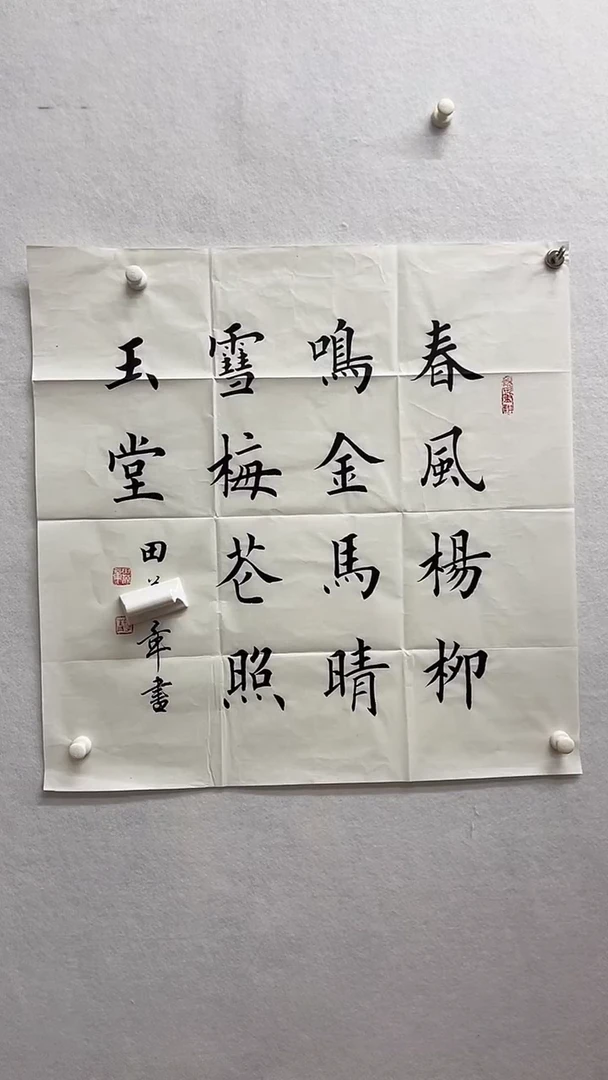 春風楊柳
鳴金馬晴
雪梅花照
玉堂
田 年書